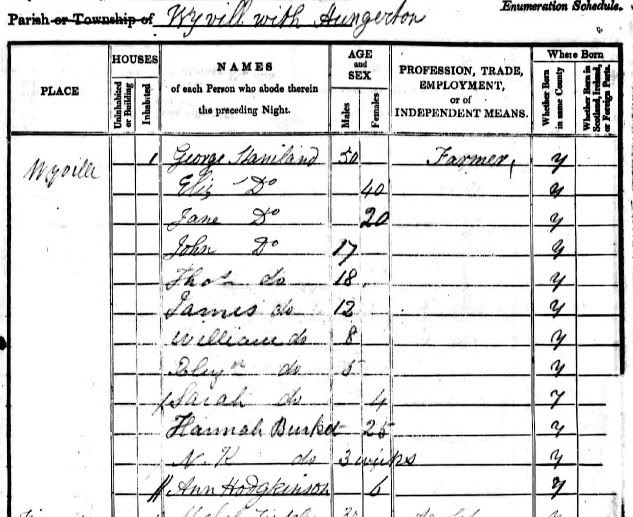 Parish or Township of Wyvill with Hungerton Enumeration Schedule.
PLACE HOUSES Uninhabited or Building Inhabited NAMES of each Person who abode therein the preceding Night. AGE and SEX Males Females PROFESSION, TRADE, EMPLOYMENT, or of INDEPENDENT MEANS. Where Born Whether Born in same County Whether Born in Scotland, Ireland, or Foreign Parts.
Wyville 1 George Staniland 50 Farmer, y
Eliz Do 40 y
Jane Do 20 y
John Do 17 y
Thos do 18 y
James do 12 y
William do 8 y
do 5 y
Sarah do 4 y
Hannah 25 y
N. K do 3 weeks y
Ann Hodgkinson 6 y